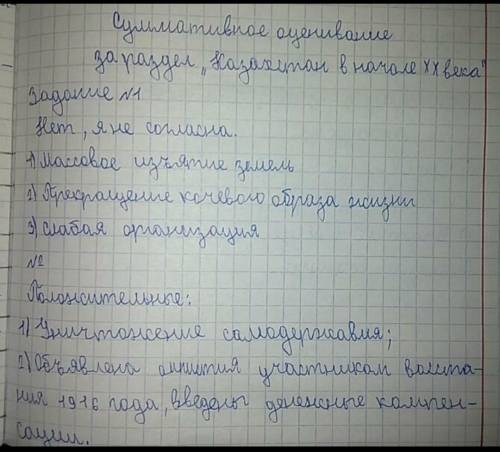 Суммативное оценивание
за раздел „Казахстан в начале XX века"
Задание №1
Нет, я не согласна.
1) Массовое изъятие земель
2) Прекращение кочевого образа жизни
3) слабая организация
№2
Положительные:
1) Уничтожение самодержавия;
2) Объявлена амнистия участникам восста-
ния 1916 года, введены денежные компен-
сации.